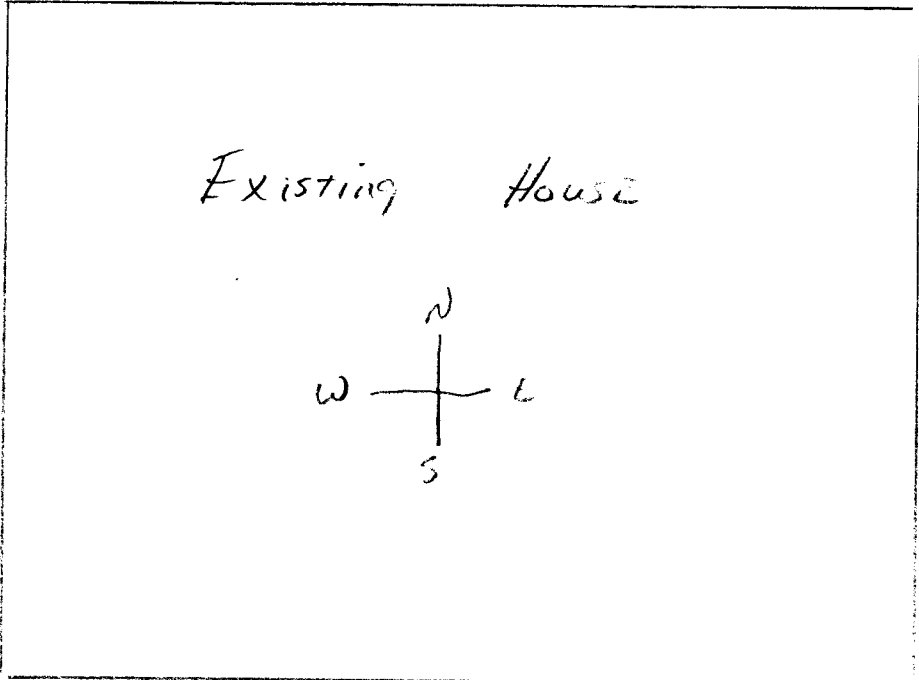 Existing House
N
W E
S